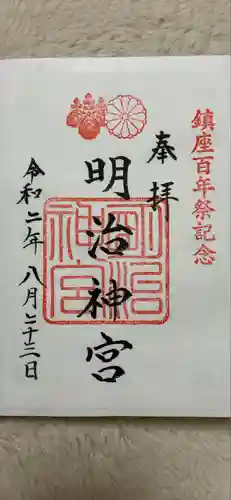 鎮座百年祭記念
奉拝
明治神宮
明治神宮
令和二年八月二十三日